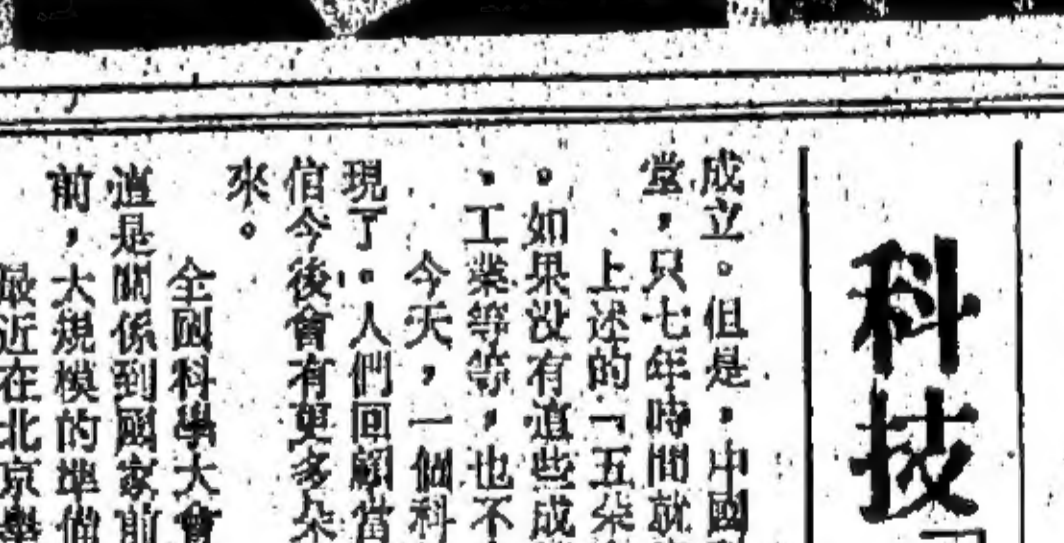 科技
成立。但是,中國
堂,只七年時間就
上述的「五朵
。如果没有這些成
、工業等等,也不
今天,一個科
現了。人們回顧當
信今後會有更多朵
來。
全國科學大會
這是關係到國家前
前,大規模的準備
最近在北京舉